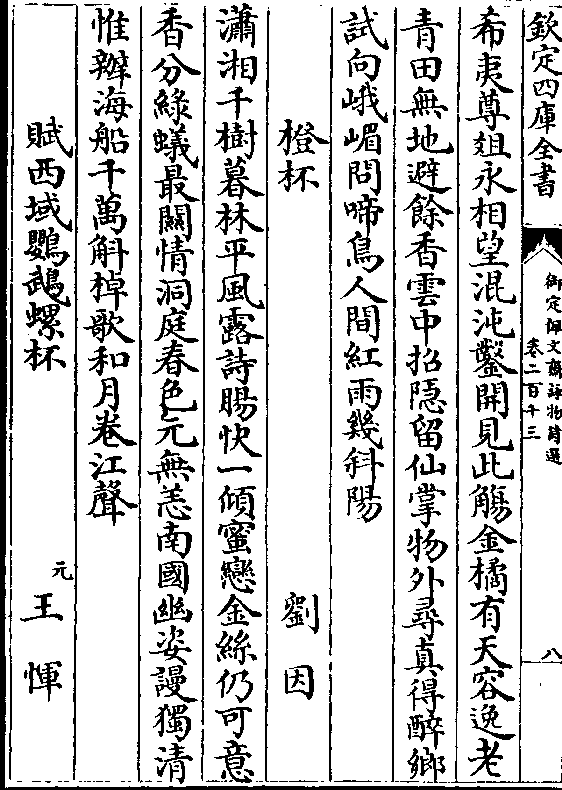 欽定四庫全書
御定佩文齋詠物詩選
卷二百十三
八
希夷尊俎永相望混沌鑿開見此觴金橘有天容逸老
青田無地避餘香雲中招隠留仙掌物外尋真得醉鄉
試向峨嵋問啼鳥人間紅雨幾斜陽
橙杯 劉因
瀟湘千樹暮林平風露詩腸快一傾蜜戀金絲仍可意
香分綠蟻最關情洞庭春色元無恙南國幽姿謾獨清
惟辦海船千萬斛棹歌和月卷江聲
賦西域鸚鵡螺杯 元王惲